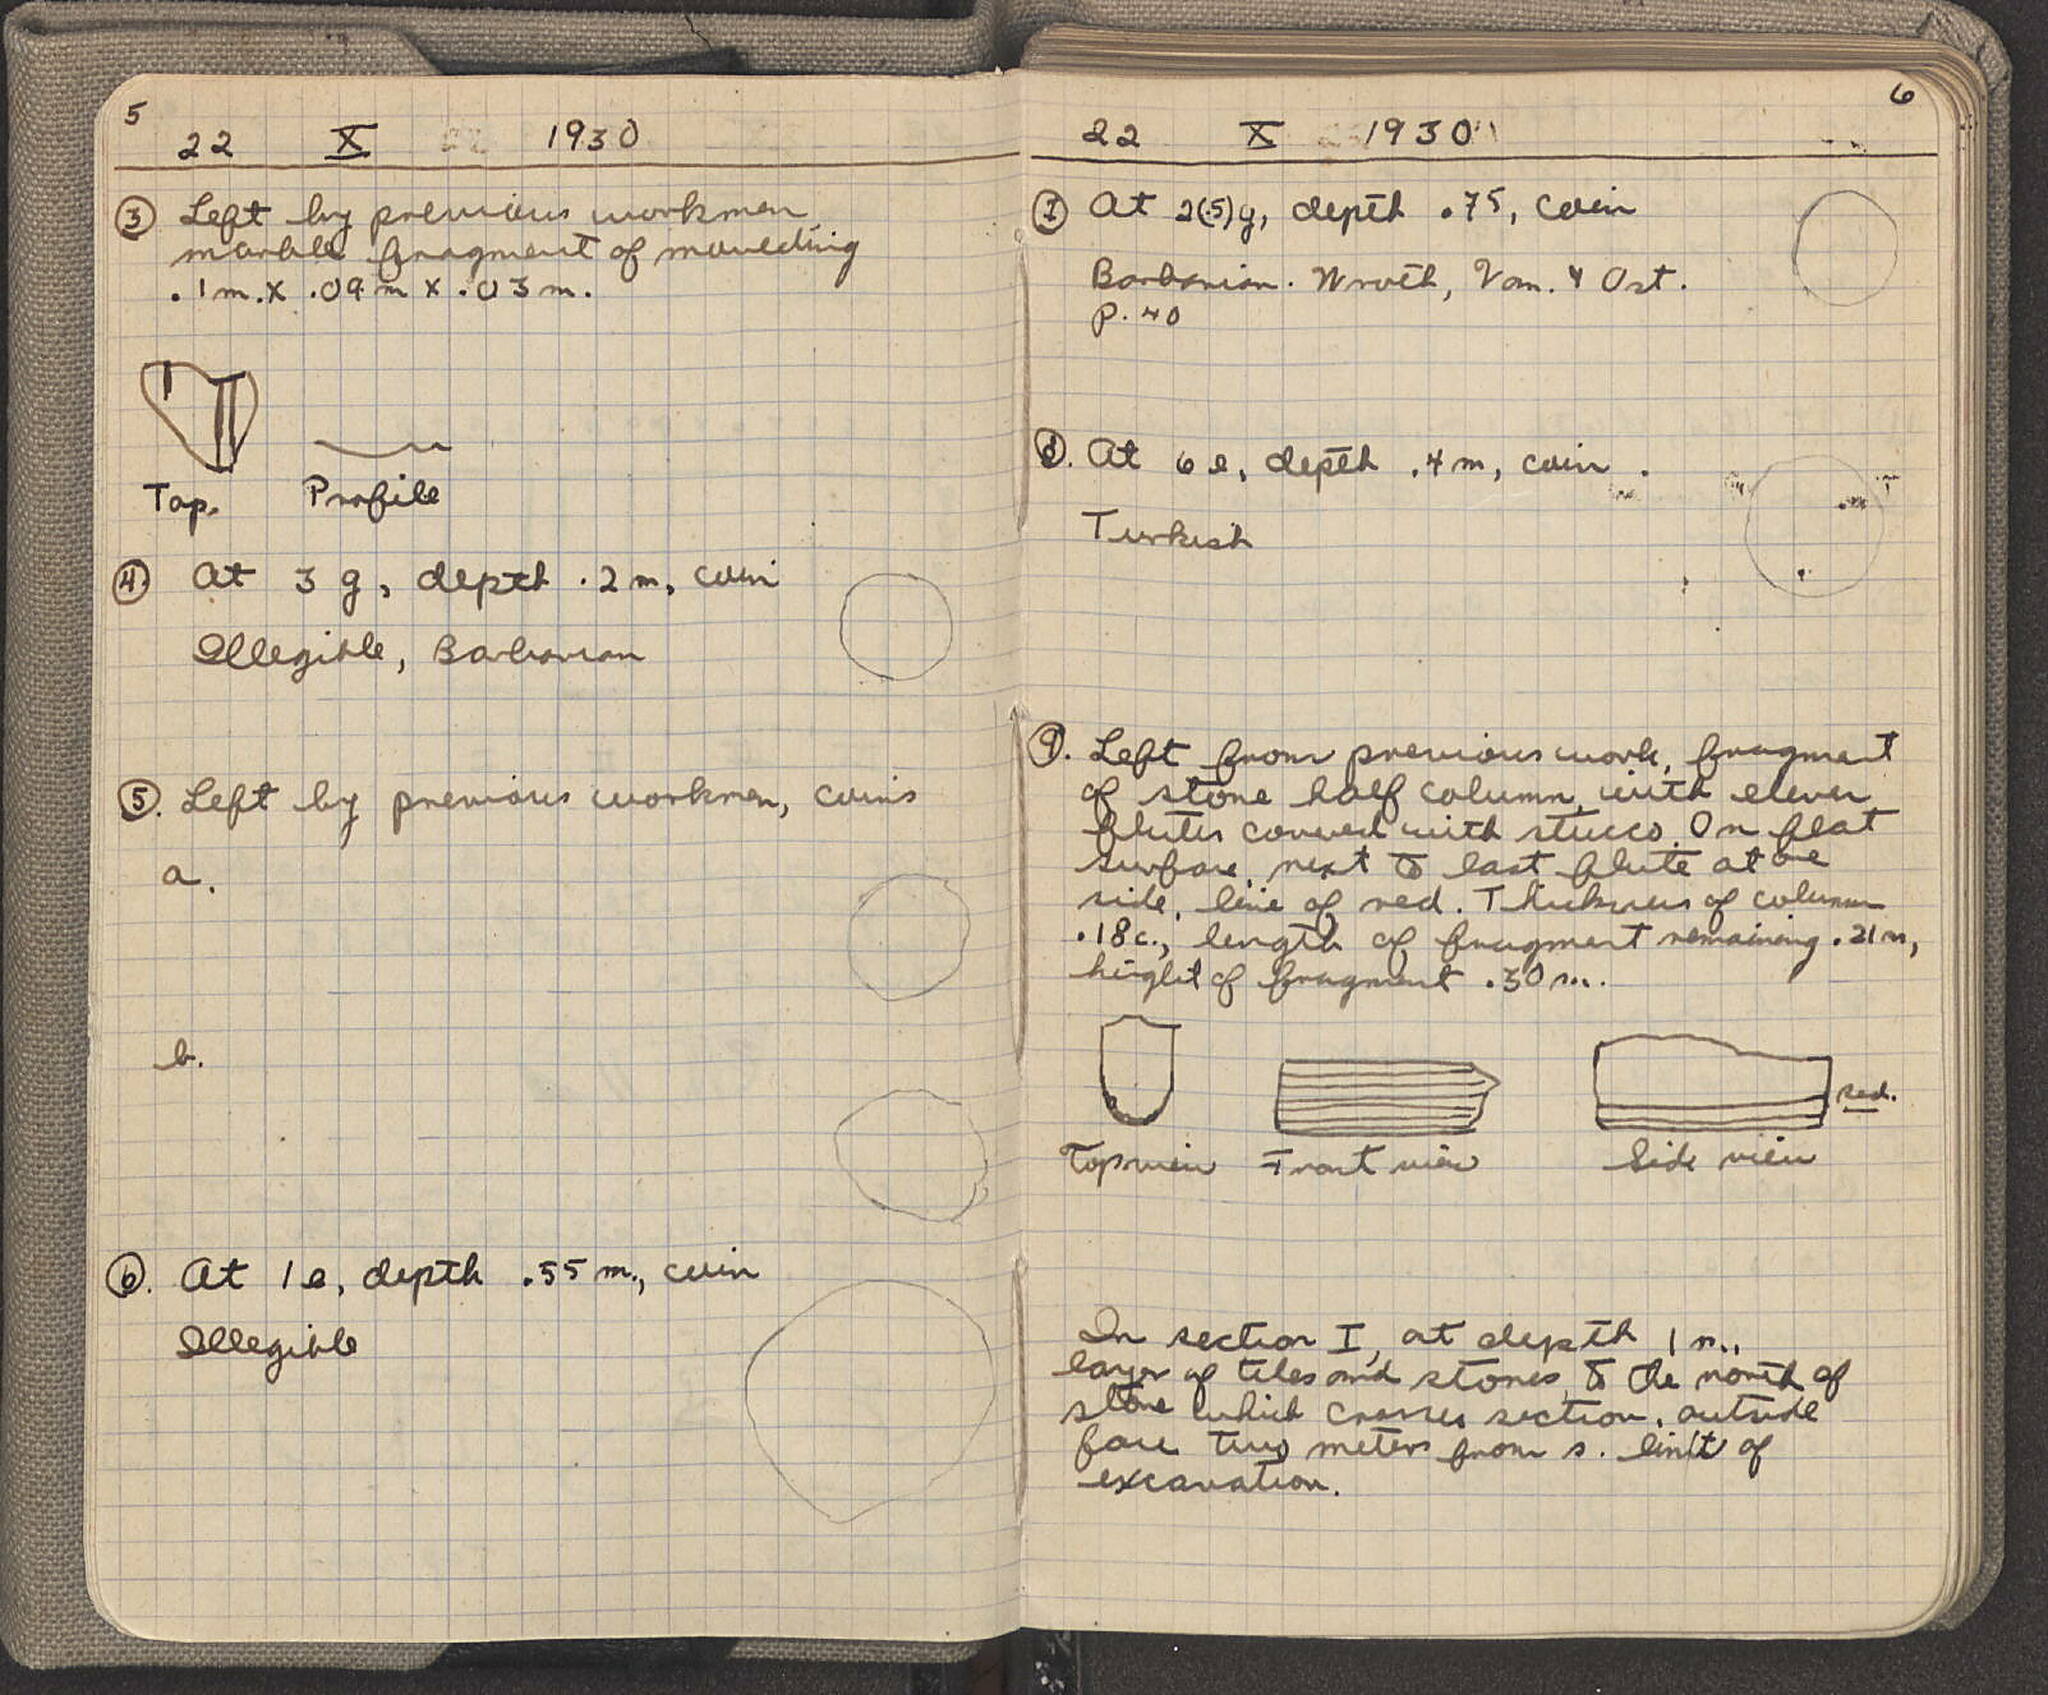 5
22 X 1930
3 Left by previous workmen
marble fragment of moulding
.1m. x .09 m x .03 m.
Top. Profile
4. At 3 g, depth .2 m, coin
Illegible, Barbarian
5. Left by previous workmen, coins
a.
b.
6. At 1 e, depth .55 m., coin
Illegible
6
22 X 1930
7 At 2(.5)g, depth .75, coin
Barbarian. Wroth, Van. & Ost.
p. 40
8. At 6 e, depth .4 m, coin.
Turkish
9. Left from previous work, fragment
of stone half column, with eleven
flutes covered with stucco. On flat
surface, next to last flute at one
side, line of red. Thickness of column
.18 c., length of fragment remaining .21 m,
height of fragment .30 m.
red.
Top view Front view Side view
In section I, at depth 1 m.,
layer of tiles and stones to the north of
stone which crosses section, outside
face two meters from s. limit of
excavation.